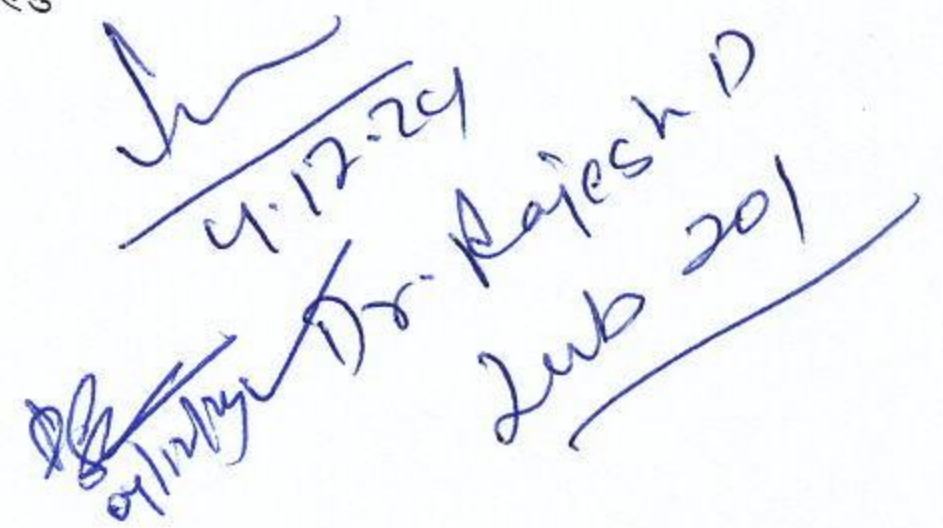 4.12.24
Dr. Rajesh D
Lab 201
04/12/24